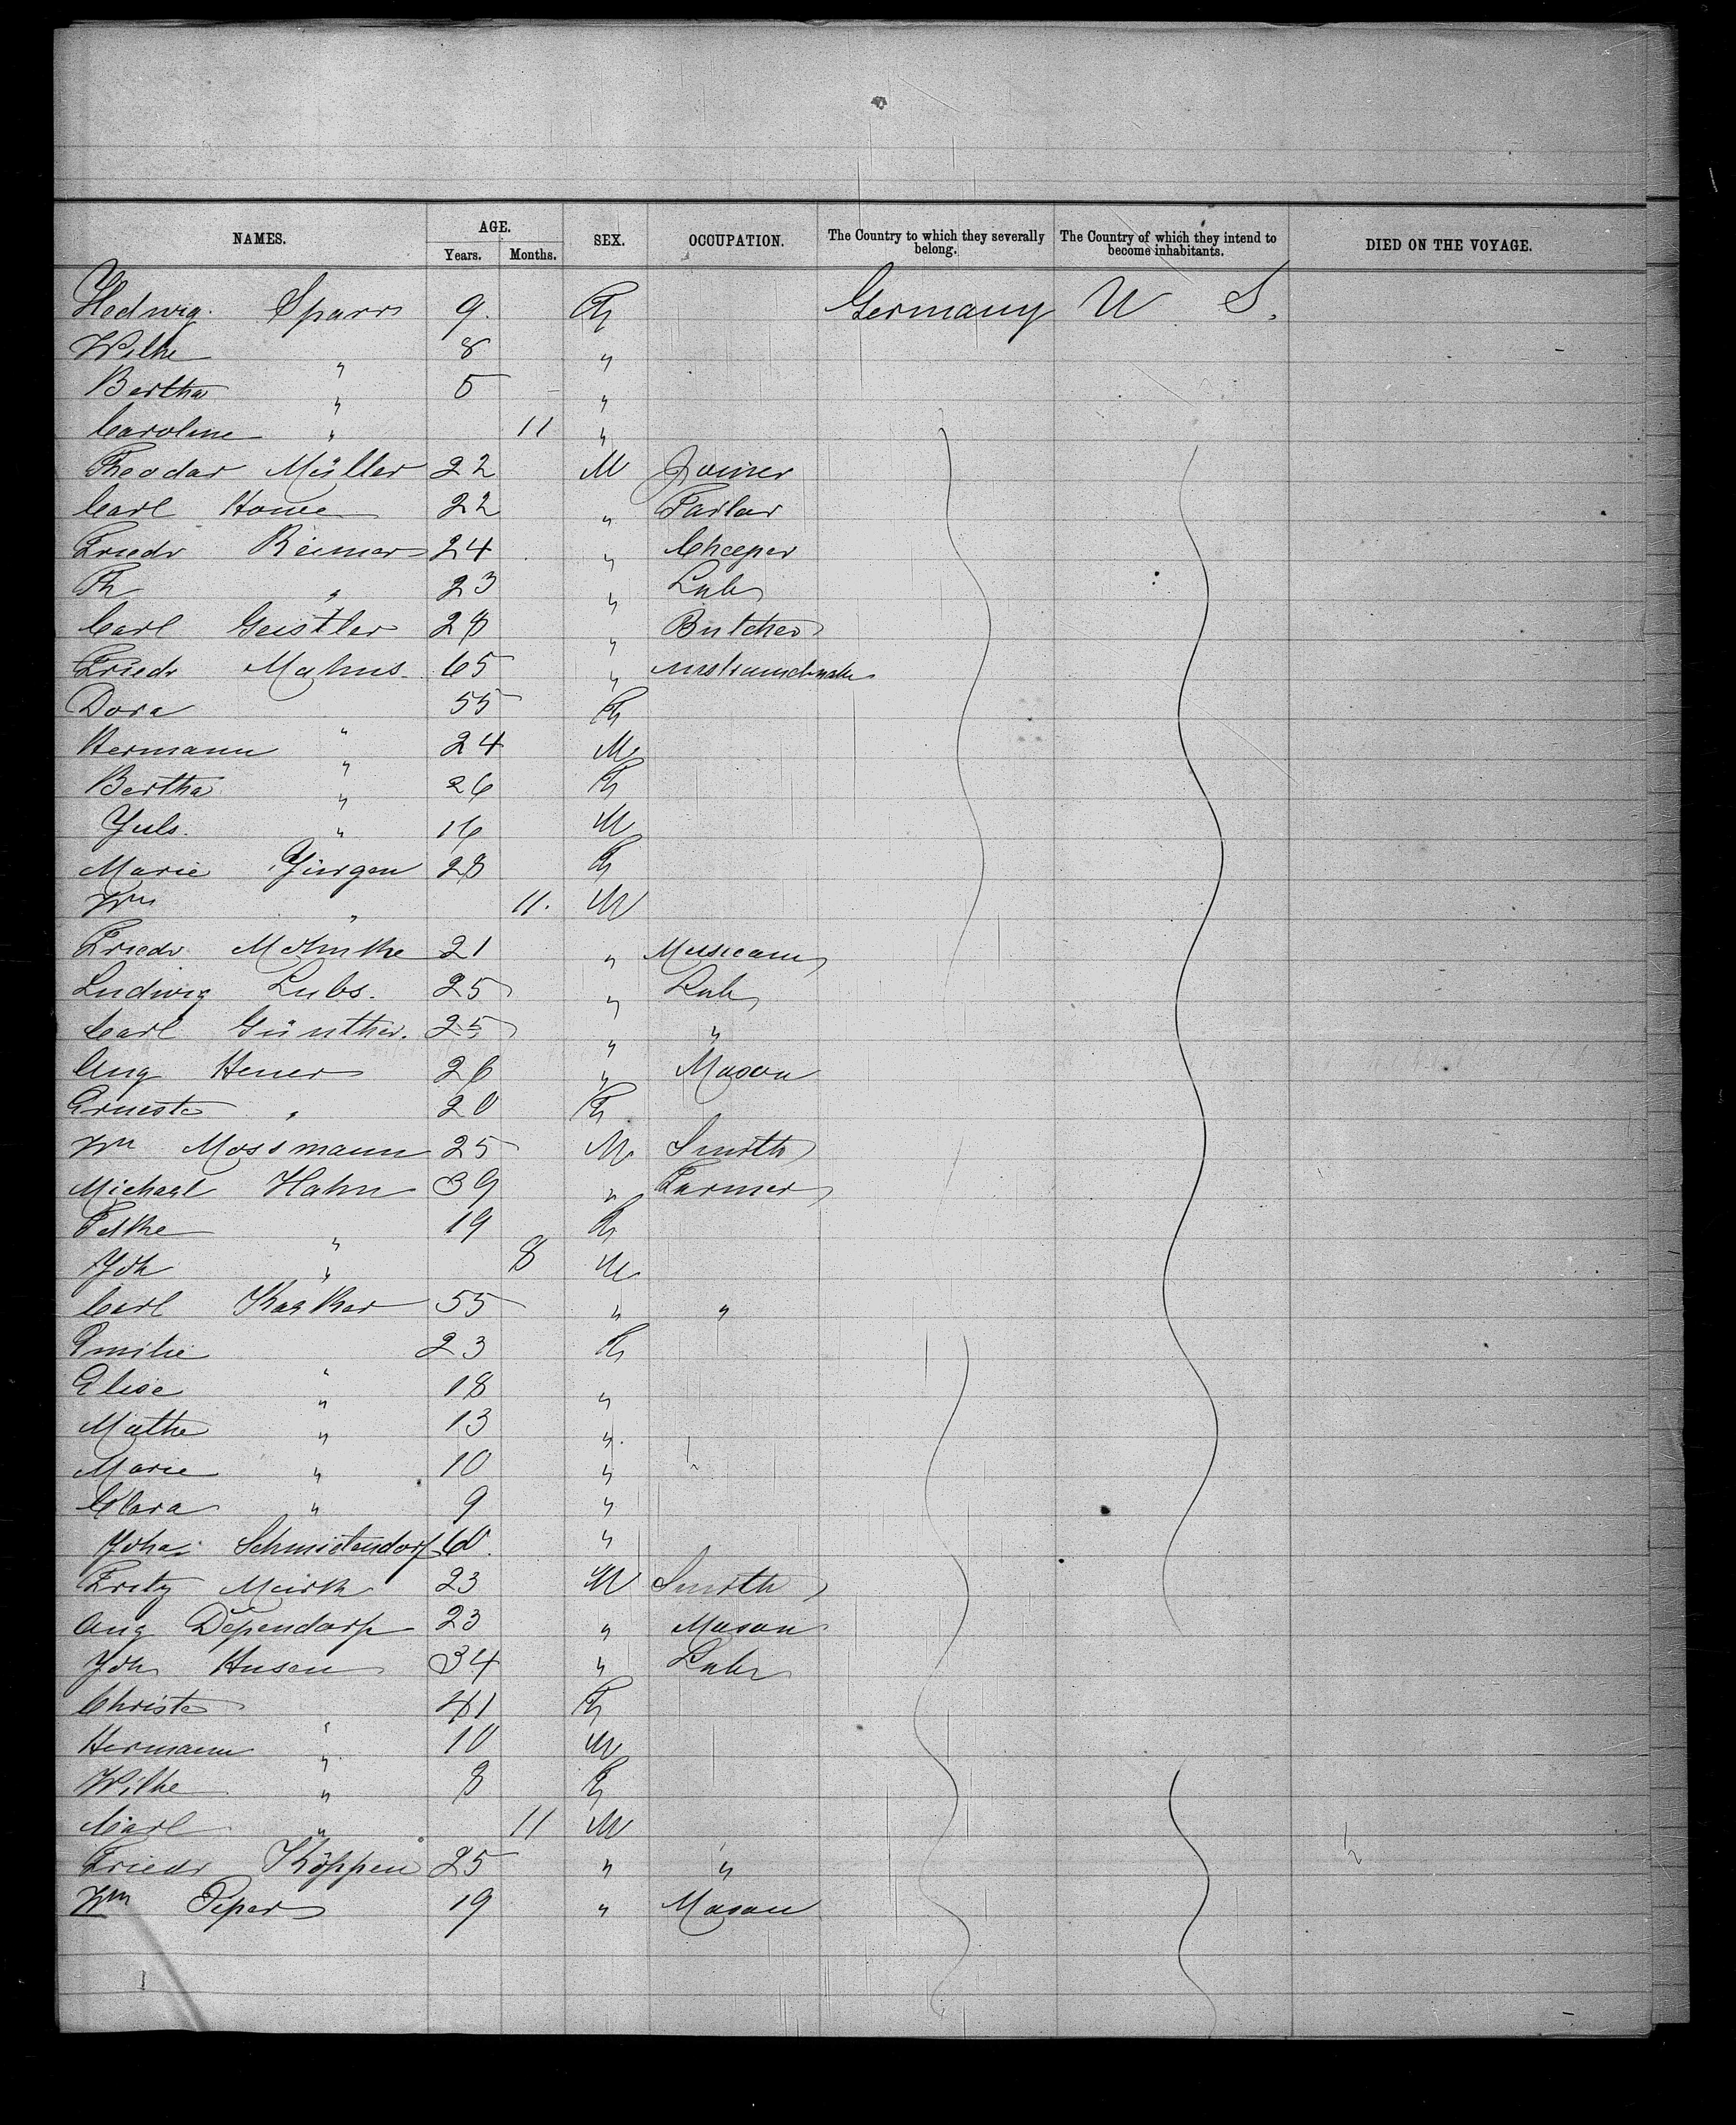 NAMES. AGE. SEX. OCCUPATION. The Country to which they severally belong. The Country of which they intend to become inhabitants. DIED ON THE VOYAGE.
Years. Months.
Hedwig Sparr 9. F Germany U S.
Wilhe " 8 "
Bertha " 5 "
Caroline " 11 "
Theodor Müller 22 M Joiner
Carl Howe 22 " Tailor
Friedr Reimer 24 "
Th " 23 " Lab
Carl Geistler 28 " Butcher
Friedr Mahns 65 "
Dora " 55 F
Hermann " 24 M
Bertha " 26 F
Juls. " 16 M
Marie Jürgen 28 F
Wm " 11. M
Friedr 21 " Musican
Ludwig Lubs. 25 " Lab
Carl Günther. 25 " "
Aug Heuer 26 " Mason
Ernest " 20 F
Wm Mossmann 25 M Smith
Michael Hahn 39 " Farmer
" 19 F
Joh " 8 M
Carl 55 " "
Emilie " 23 F
Elise " 18 "
Mathe " 13 "
Marie " 10 "
Clara " 9 "
Joha Schmietendorf 60. "
Fritz 23 M Smith
Aug Dependorf 23 " Mason
Joh Husen 34 " Lab
Christe " 41 F
Hermann " 10 M
Wilhe " 8 F
Carl " 11 M
Friedr Köppen 25 " "
Wm Peper 19 " Mason